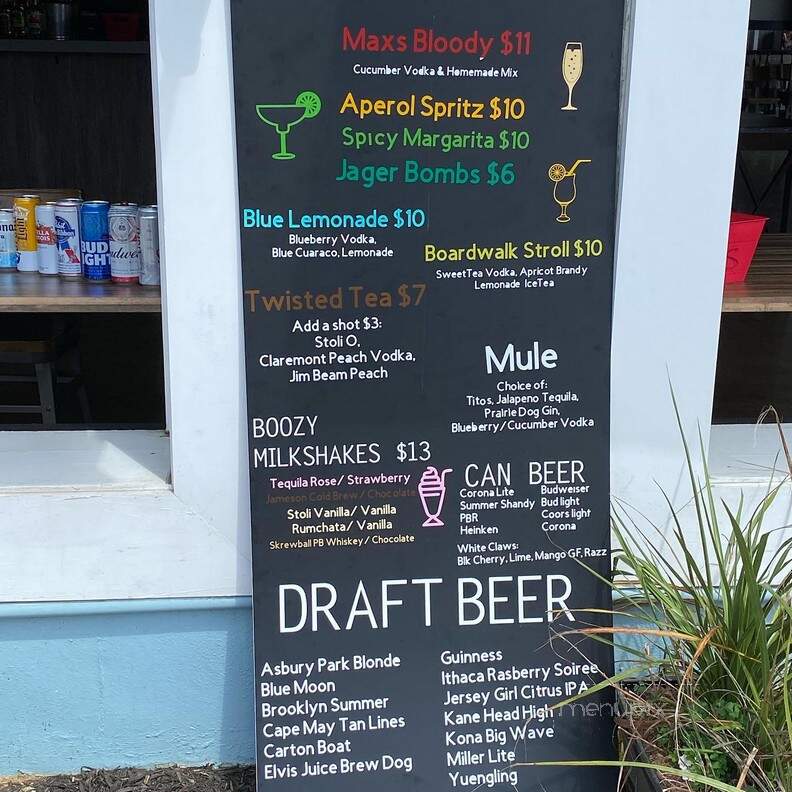 Maxs Bloody $11
Cucumber Vodka & Homemade Mix
Aperol Spritz $10
Spicy Margarita $10
Jager Bombs $6
Blue Lemonade $10
Blueberry Vodka,
Blue Cuaraco, Lemonade
Boardwalk Stroll $10
SweetTea Vodka, Apricot Brandy
Lemonade IceTea
Twisted Tea $7
Add a shot $3:
Stoli O,
Claremont Peach Vodka,
Jim Beam Peach
Mule
Choice of:
Titos, Jalapeno Tequila,
Prairie Dog Gin,
Blueberry/Cucumber Vodka
BOOZY
MILKSHAKES $13
Tequila Rose/ Strawberry
Jameson Cold Brew / Chocolate
Stoli Vanilla/ Vanilla
Rumchata/ Vanilla
Skrewball PB Whiskey / Chocolate
CAN BEER
Corona Lite
Summer Shandy
PBR
Heinken
Budweiser
Bud light
Coors light
Corona
White Claws:
Blk Cherry, Lime, Mango GF, Razz
DRAFT BEER
Asbury Park Blonde
Blue Moon
Brooklyn Summer
Cape May Tan Lines
Carton Boat
Elvis Juice Brew Dog
Guinness
Ithaca Rasberry Soiree
Jersey Girl Citrus IPA
Kane Head High
Kona Big Wave
Miller Lite
Yuengling
menupix
BUD
LIGHT